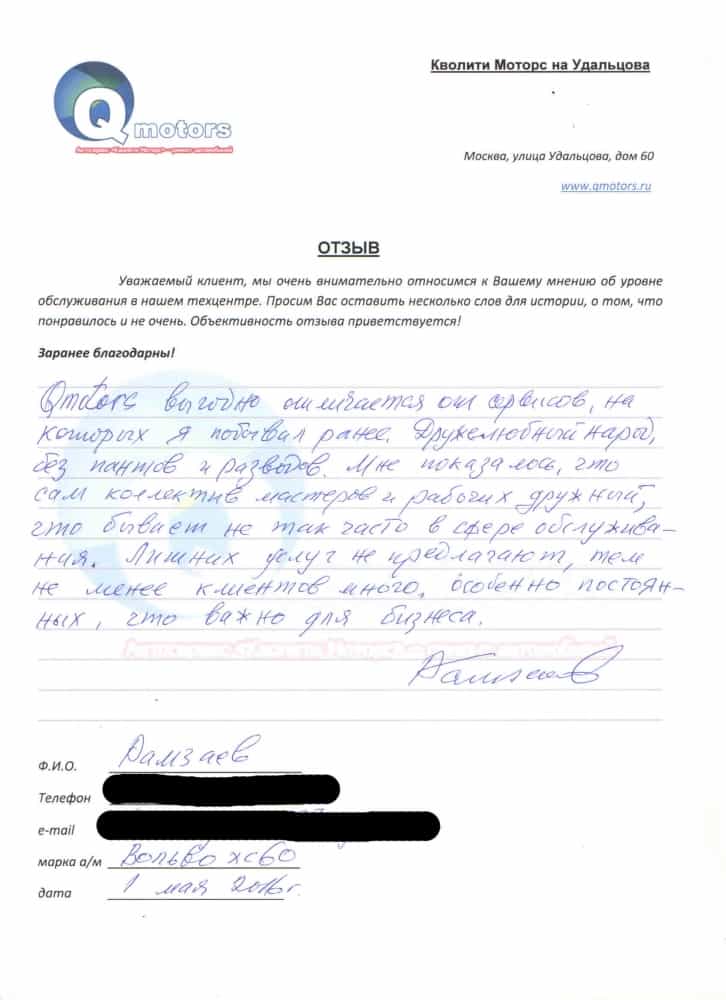 Кволити Моторс на Удальцова
Q motors
Автосервис «Кволити Моторс» - ремонт автомобилей
Москва, улица Удальцова, дом 60
www.qmotors.ru
ОТЗЫВ
Уважаемый клиент, мы очень внимательно относимся к Вашему мнению об уровне
обслуживания в нашем техцентре. Просим Вас оставить несколько слов для истории, о том, что
понравилось и не очень. Объективность отзыва приветствуется!
Заранее благодарны!
Qmotors выгодно отличается от сервисов, на
которых я побывал ранее. Дружелюбный народ,
без пантов и разводов. Мне показалось, что
сам коллектив мастеров и рабочих дружный,
что бывает не так часто в сфере обслужива-
ния. Лишних услуг не предлагают, тем
не менее клиентов много, особенно постоян-
ных, что важно для бизнеса.
Ф.И.О. Дамзаев
Телефон
e-mail
марка а/м Вольво хс60
дата 1 мая 2016 г.